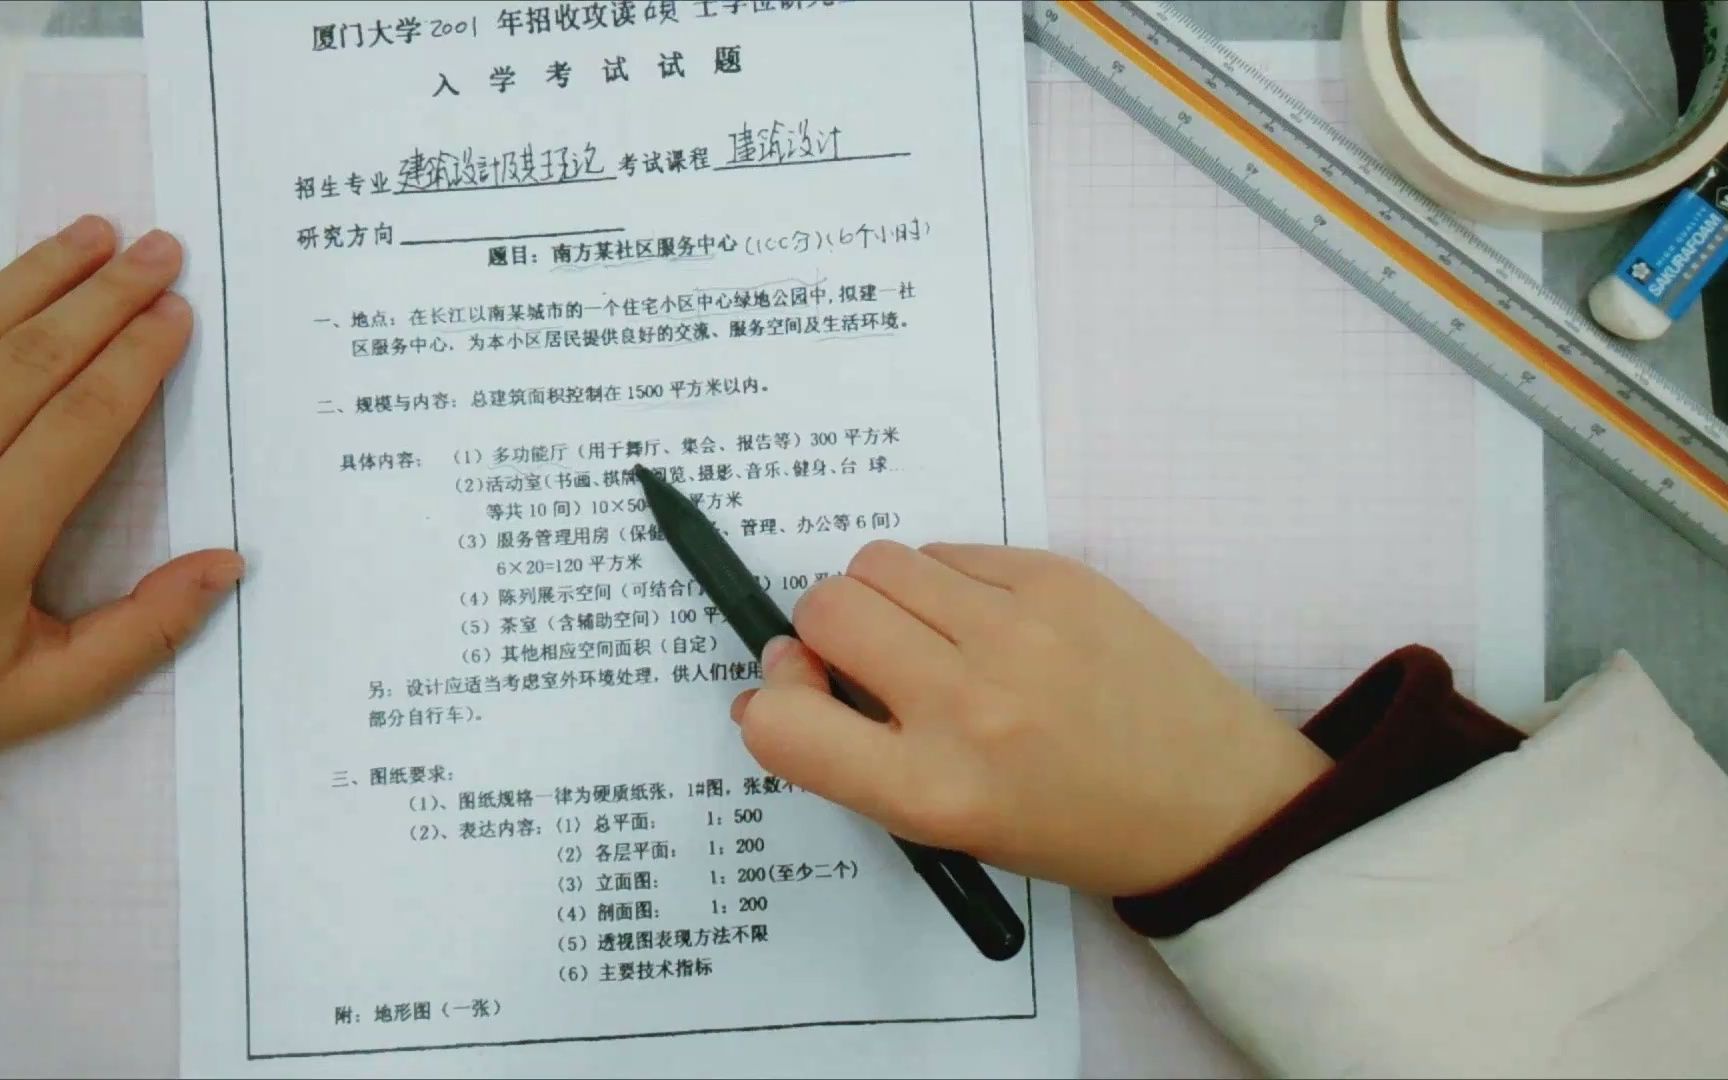 厦门大学2001年招收攻读硕士学位研究
入学考试试题
招生专业 建筑设计及其理论 考试课程 建筑设计
研究方向
题目：南方某社区服务中心（100分）（6个小时）
一、地点：在长江以南某城市的一个住宅小区中心绿地公园中，拟建一社
区服务中心，为本小区居民提供良好的交流、服务空间及生活环境。
二、规模与内容：总建筑面积控制在1500平方米以内。
具体内容：（1）多功能厅（用于舞厅、集会、报告等）300平方米
（2）活动室（书画、棋牌 阅览、摄影、音乐、健身、台球…
等共10间）10×50 平方米
（3）服务管理用房（保健 、管理、办公等6间）
6×20=120平方米
（4）陈列展示空间（可结合门 ）100平
（5）茶室（含辅助空间）100平
（6）其他相应空间面积（自定）
另：设计应适当考虑室外环境处理，供人们使用
部分自行车）。
三、图纸要求：
（1）、图纸规格一律为硬质纸张，1#图，张数不
（2）、表达内容：（1）总平面： 1：500
（2）各层平面： 1：200
（3）立面图： 1：200(至少二个)
（4）剖面图： 1：200
（5）透视图表现方法不限
（6）主要技术指标
附：地形图（一张）
SAKURA FOAM